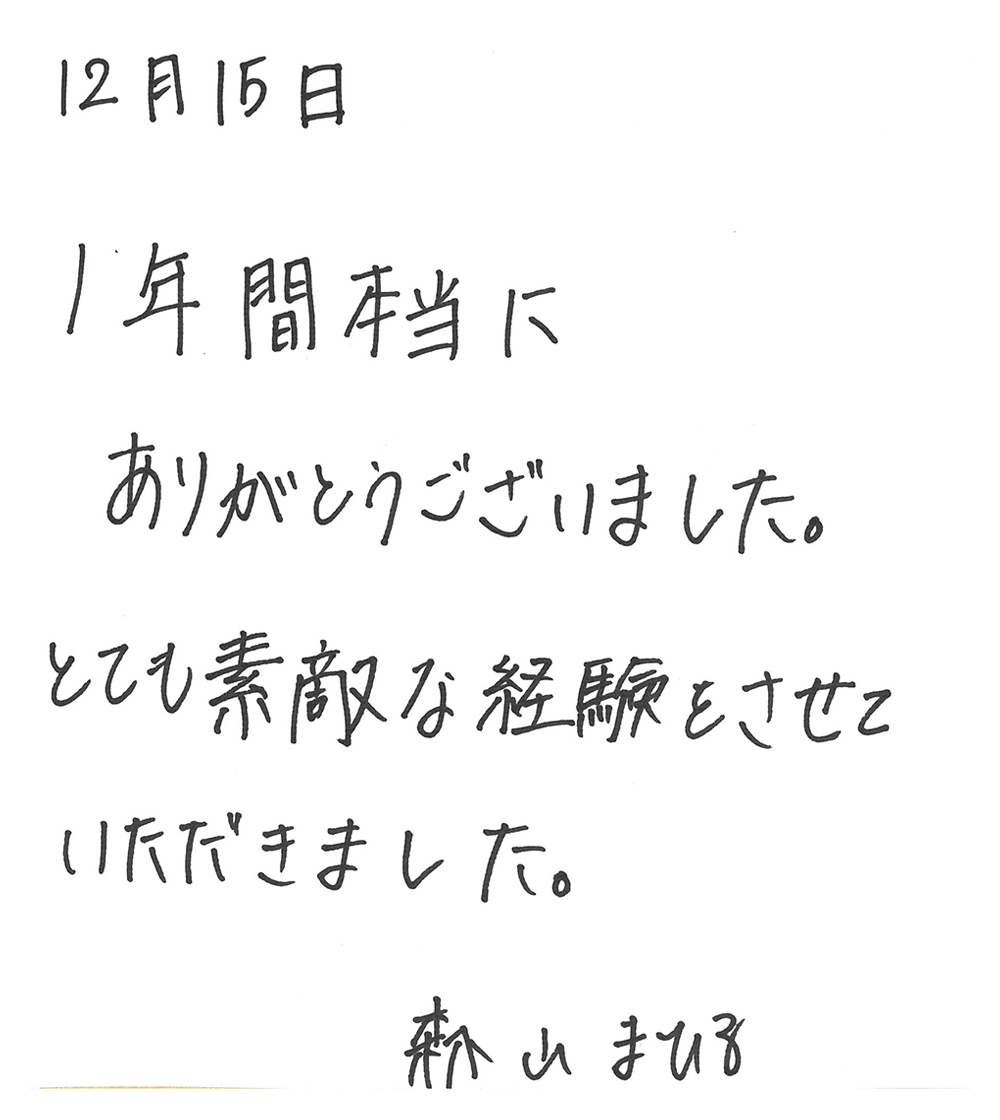 12月15日
1年間本当に
ありがとうございました。
とても素敵な経験をさせて
いただきました。
森山まひる